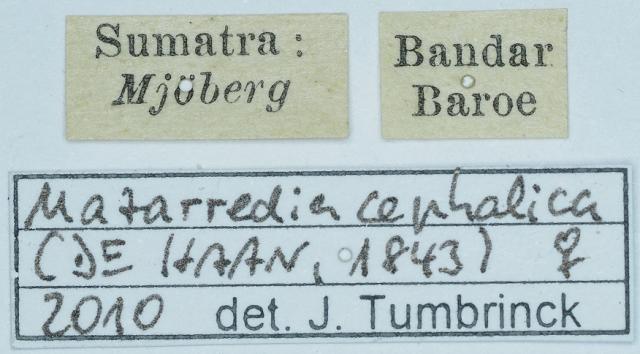 Sumatra :
Mjöberg
Bandar
Baroe
Matarredia cephalica
(DE HAAN, 1843) ♀
2010 det. J. Tumbrinck